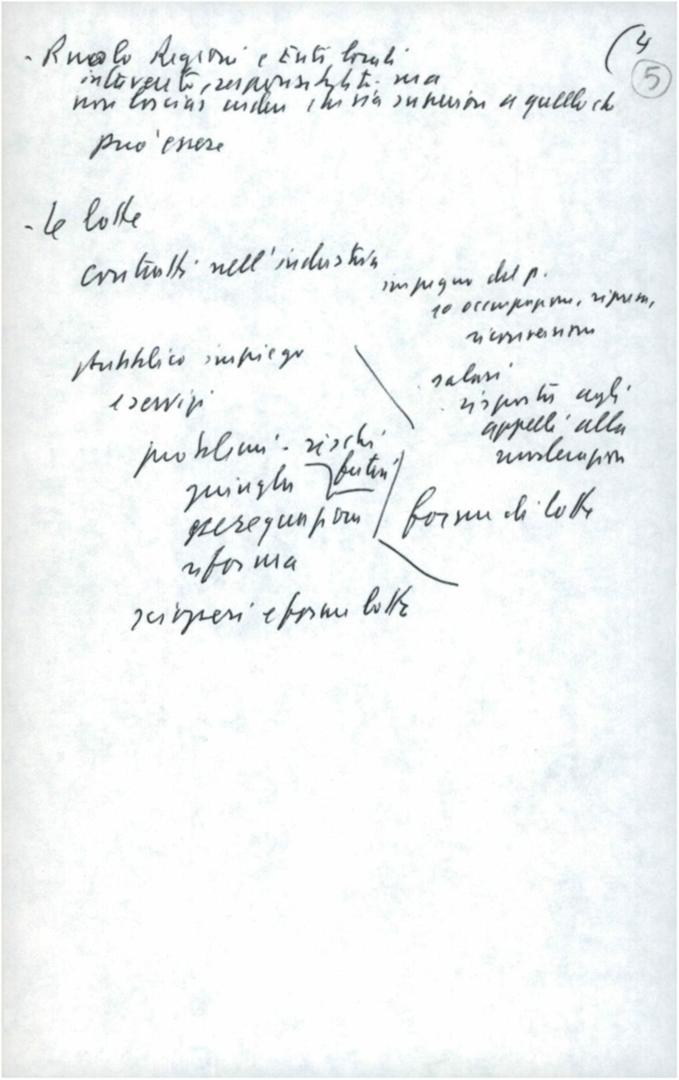 (4
5
- Ruolo Regioni e Enti locali
intervento, responsabilità. ma
non lasciar credere che sia superiore a quello che
può essere
- Le lotte
contratti nell'industria
impegno del p.
occupazione, ripresa,
riconversione
pubblico impiego
e servizi
salari
risposta agli
appelli alla
moderazione
problemi - rischi
giungla
perequazione
riforma
forme di lotta
scioperi e forme lotta